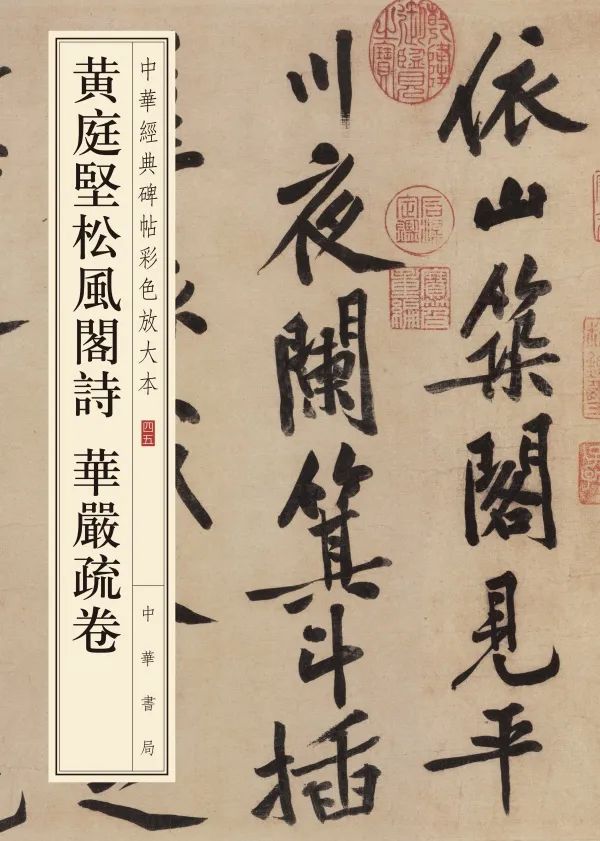 依山築閣見平
川夜闌箕斗插
中華經典碑帖彩色放大本
四五
中華書局
黄庭堅松風閣詩 華嚴疏卷